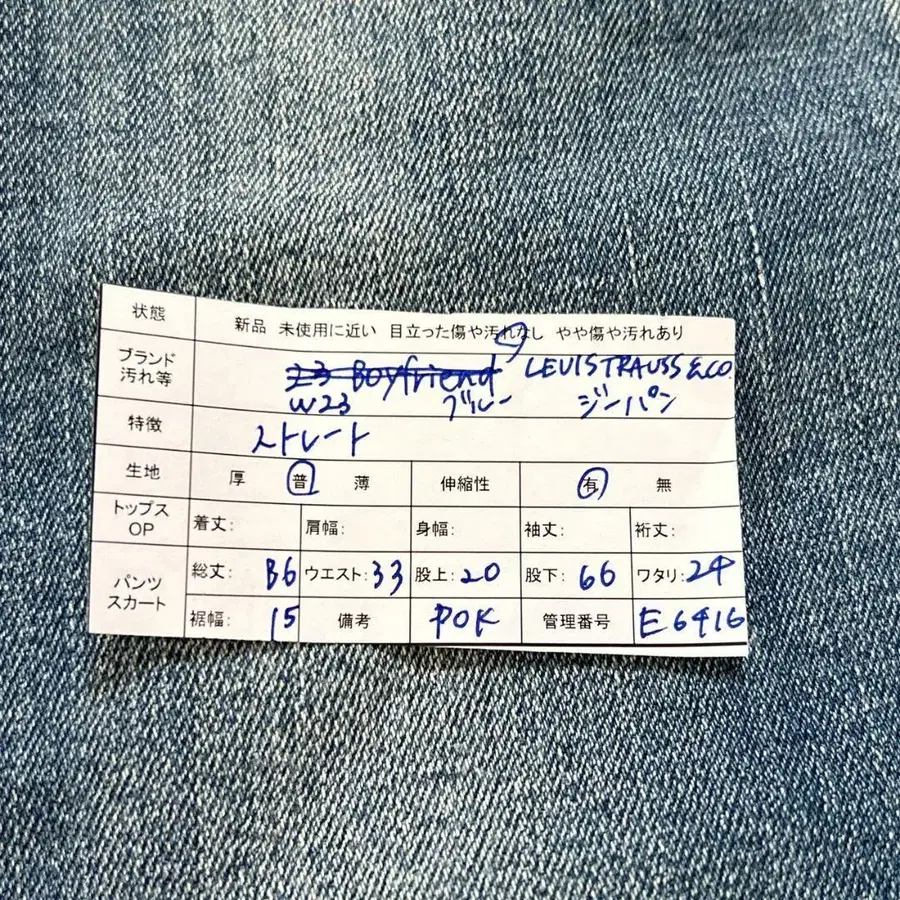 状態 新品 未使用に近い 目立った傷や汚れなし やや傷や汚れあり
ブランド 汚れ等 23 Boyfriend LEVISTRAUSS &CO
W23 ブルー ジーパン
特徴 ストレート
生地 厚 普 薄 伸縮性 有 無
トップス OP 着丈: 肩幅: 身幅: 袖丈: 裄丈:
パンツ スカート 総丈: 86 ウエスト: 33 股上: 20 股下: 66 ワタリ: 24
裾幅: 15 備考 POK 管理番号 E6416